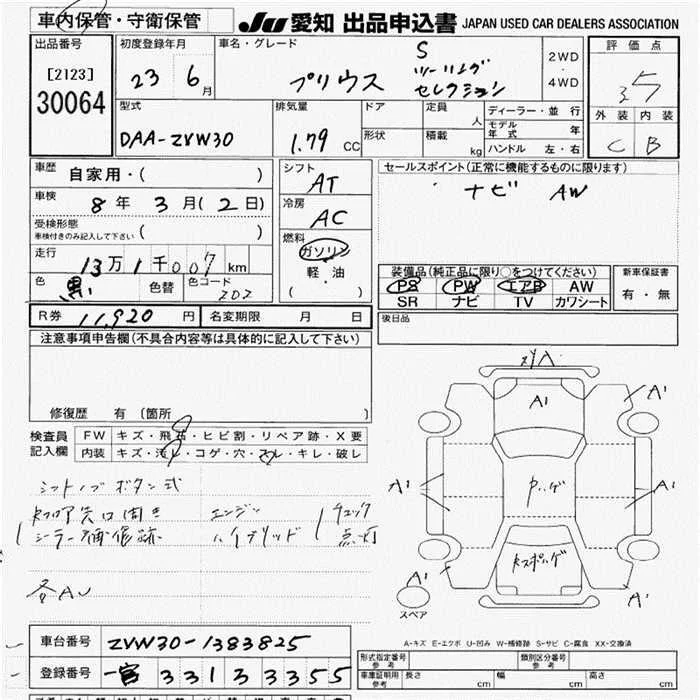 車内保管・守衛保管
JU 愛知 出品申込書 JAPAN USED CAR DEALERS ASSOCIATION
出品番号
[2123]
30064
初度登録年月
23 6月
車名・グレード
プリウス
S
ツーリング
セレクション
2WD
・
4WD
評価点
3.5
外装 内装
C B
型式
DAA-ZVW30
排気量
1.79 CC
ドア
形状
定員 人
積載 kg
ディーラー・並行
モデル年式 年
ハンドル 左・右
車歴
自家用・( )
車検
8年 3月(2日)
受検形態
車検付きのみ記入して下さい ( )
走行
13万1千007km
色
黒
色替
色コード
202
シフト
AT
冷房
AC
燃料
ガソリン
軽・油
( )
セールスポイント(正常に機能するものに限ります)
ナビ AW
装備品(純正品に限り○をつけてください)
PS PW エアB AW
SR ナビ TV カワシート
新車保証書
有・無
R券 11,920円 名変期限 月 日
後日品
注意事項申告欄(不具合内容等は具体的に記入して下さい)
修復歴 有〔箇所 〕
検査員
記入欄
FW キズ・飛石・ヒビ割・リペア跡・X要
内装 キズ・汚レ・コゲ・穴・スレ・キレ・破レ
シフトノブボタン式
シーラー補修跡
エンジン
ハイブリッド
チェック
点灯
各AU
A'
A'
A'
A'
A'
A'
スペア
A-キズ E-エクボ U-凹み W-補修跡 S-サビ C-腐食 XX-交換済
車台番号 ZVW30-1383825
登録番号 一宮 331 3 3355
型式指定番号
参考
類別区分番号
参考
車庫証明用
参考
長さ cm 幅 cm 高さ cm